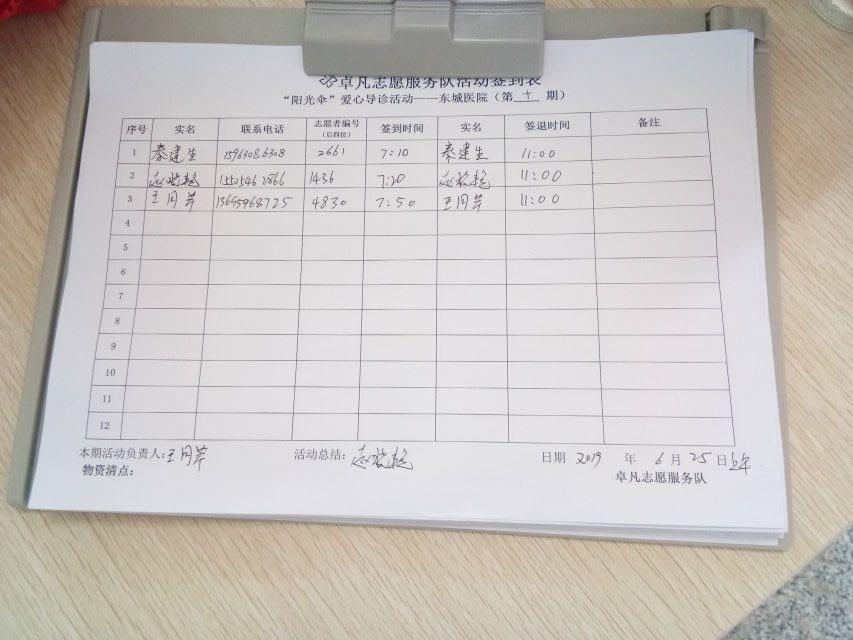 卓凡志愿服务队活动签到表
“阳光伞”爱心导诊活动——东城医院（第 十 期）
序号 实名 联系电话 志愿者编号（后四位） 签到时间 实名 签退时间 备注
1 秦建生 15963086308 2661 7:10 秦建生 11:00
2 1436 7:20 11:00
3 王同芹 13695968725 4830 7:50 王同芹 11:00
4
5
6
7
8
9
10
11
12
本期活动负责人：王同芹 活动总结： 日期 2019 年 6 月 25 日上午
物资清点： 卓凡志愿服务队